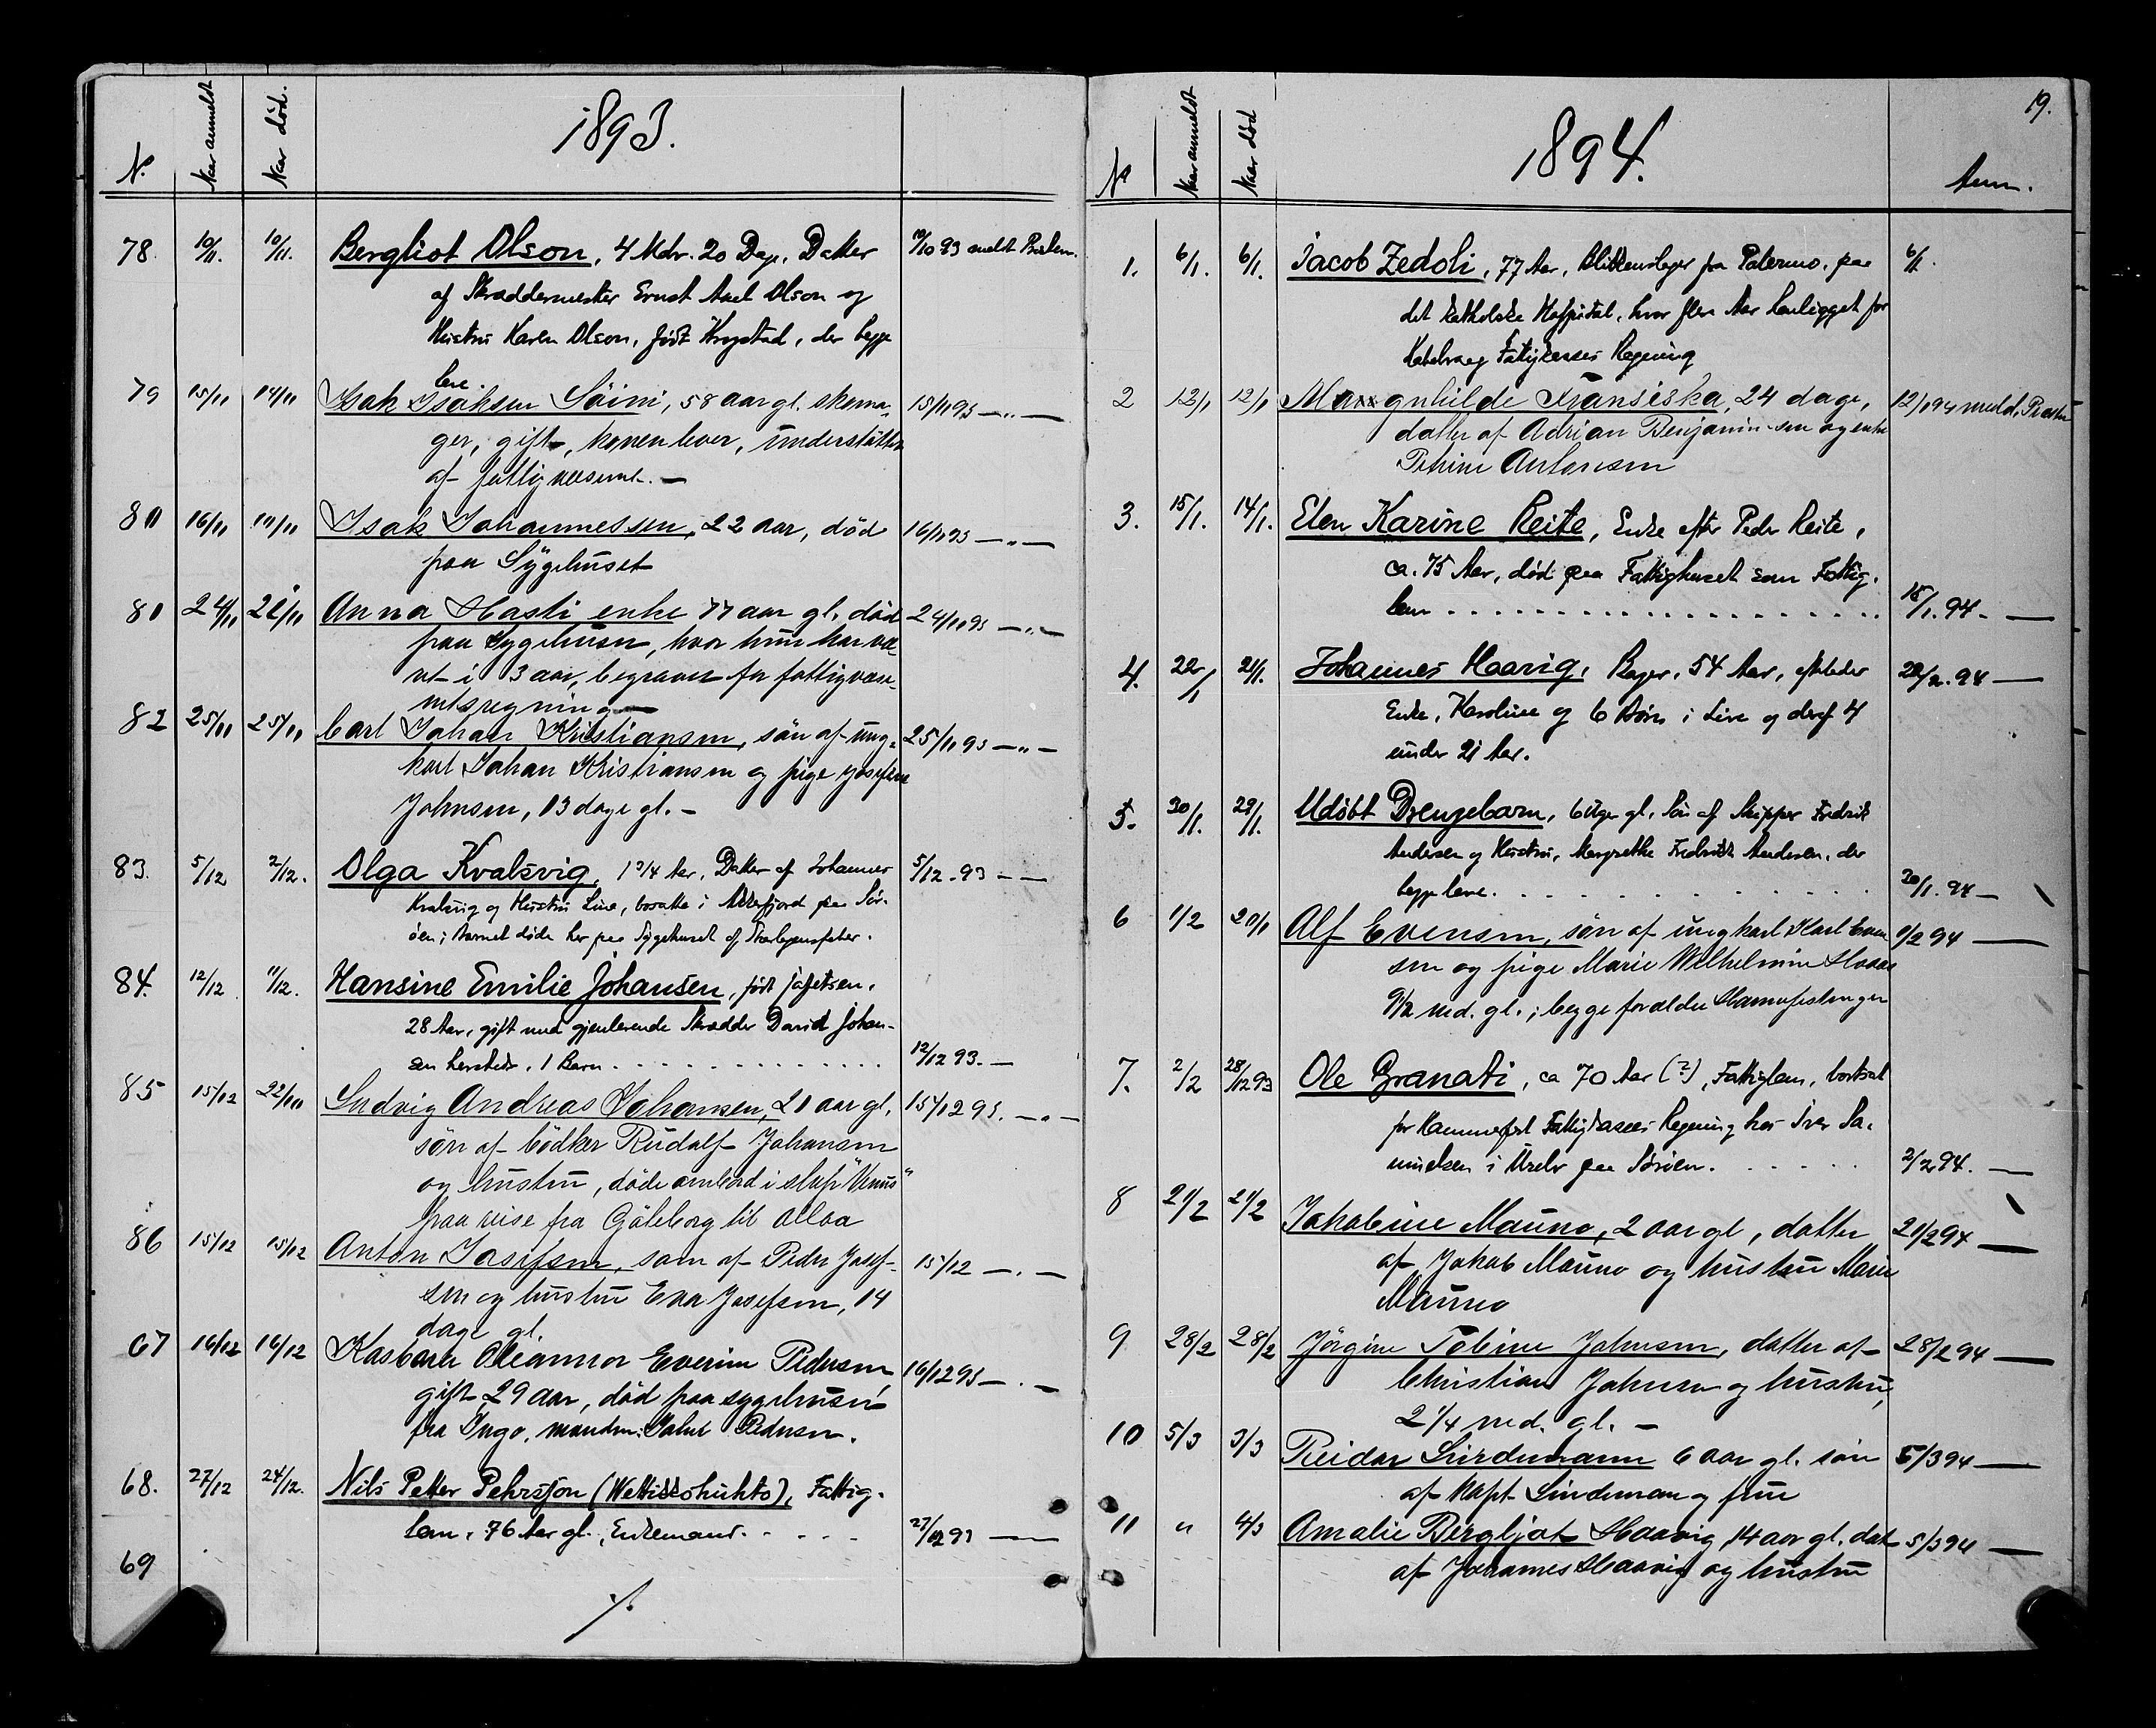 1893.
N.
Naar anmeldt
Naar død.
78. 10/11. 10/11. Bergliot Olson, 4 Mdr. 20 Dage, Datter 10/10 93 meldt Præsten.
af Skræddermester Ernst Axel Olson og
Hustru Karen Olson, født Krystad, der begge
leve.
79 15/11 14/11 Isak Isaksen Söini, 58 aar gl. skoma- 15/11 93 —"—
ger, gift, konen lever, understöttes
af fattigvæsenet. —
80 16/11 11/11 Isak Johannessen, 22 aar, död 16/11 93 —"—
paa Sygehuset
80 24/11 22/11 Anna Hasti enke 77 aar gl. död 24/11 93 —"—
paa Sygehuset, hvor hun har væ-
ret i 3 aar, begraves for fattigvæse-
nets regning —
82 25/11 25/11 Carl Johan Kristiansen, sön af ung- 25/11 93 —"—
karl Johan Kristiansen og pige Josefine
Johnsen, 13 dage gl. —
83. 5/12 2/12. Olga Kvalsvig, 1 3/4 Aar, Datter af Johannes 5/12. 93 — —
Kvalsvig og Hustru Line, bosatte i Akkerfjord paa Sör-
öen; Barnet döde her paa Sygehuset af Skarlagensfeber.
84. 12/12 11/12. Hansine Emilie Johansen, födt Jafetsen,
28 Aar, gift med gjenlevende Skrædder David Johan-
sen hersteds, 1 Barn . . . . . . . . . . . . . 12/12 93. —
85 15/12 22/10 Ludvig Andreas Johansen, 21 aar gl. 15/12 93. —"—
sön af bödker Rudolf Johansen
og hustru, döde ombord i slup "Venus"
paa reise fra Göteborg til Alloa
86 15/12 15/12 Anton Josefsen, sön af Peder Josef- 15/12 —.—
sen og hustru Eva Josefsen, 14
dage gl.
67 16/12 16/12 Kasbara Oleanna Everine Pedersen 16/12 93 —.—
gift 29 aar, död paa sygehuset
fra Ingö, manden: Jakob Pedersen.
68. 27/12 24/12. Nils Petter Pehrssjon (Wettissohuhto), Fattig-
lem, 76 Aar gl., Enkemand. . . . . 27/12 93 —
69
./.
19.
1894.
N.
Naar anmeldt
Naar död
Anm.
1. 6/1. 6/1. Jacob Zedoli, 77 Aar, Blikkenslager fra Palermo, paa 6/1.
det katholske Hospital, hvor flere Aar henligget for
Fattigkasses Regning
2 12/1 12/1 Magnhilde Fransiska, 24 dage, 12/1 94 medd. Præsten
datter af Adrian Benjaminsen og enke
Petrine Antonsen
3. 15/1. 14/1. Elen Karine Reite, Enke efter Peder Reite,
ca. 75 Aar, död paa Fattighuset som Fattig-
lem . . . . . . . . . . . . . . . . . . 15/1. 94 — —
4. 22/1 21/1. Johannes Haavig, Bager, 54 Aar, efterlader 22/2. 94 —
Enke, Karoline og 6 Börn i Live og deraf 4
under 21 Aar.
5. 30/1. 29/1. Udöbt Drengebarn, 6 Uger gl. Sön af Skipper Fredrik
Andersen og Hustru, Margrethe Fredrikke Andersen, der
begge leve. . . . . . . . . . . . . . 30/1. 94 —
6 1/2 20/1 Alf Evensen, sön af ungkarl Karl Even 1/2 94 —
sen og pige Marie Wilhelmine Haaes
9 1/2 md. gl.; begge forældre Hammerfestinger
7. 2/2 28/12 93 Ole Granati, ca 70 Aar (?), Fattiglem, bortsat
for Hammerfest Fattigkasses Regning hos Iver Sa-
muelsen i paa Söröen. . . . . . 2/2 94. —
8 21/2 21/2 Jakobine Mauno, 2 aar gl, datter 21/2 94 —
af Jakob Mauno og hustru Marie
Mauno
9 28/2 28/2 Jörgine Tobine Johnsen, datter af 28/2 94 —
Christian Johnsen og hustru,
2 1/4 md. gl. —
10 5/3 3/3 Reidar Lindemann 6 aar gl. sön 5/3 94 —
af Kapt. Lindeman og frue
11 " 4/3 Amalie Bergljot Haavig, 14 aar gl. dat- 5/3 94 —
af Johannes Haavig og hustru